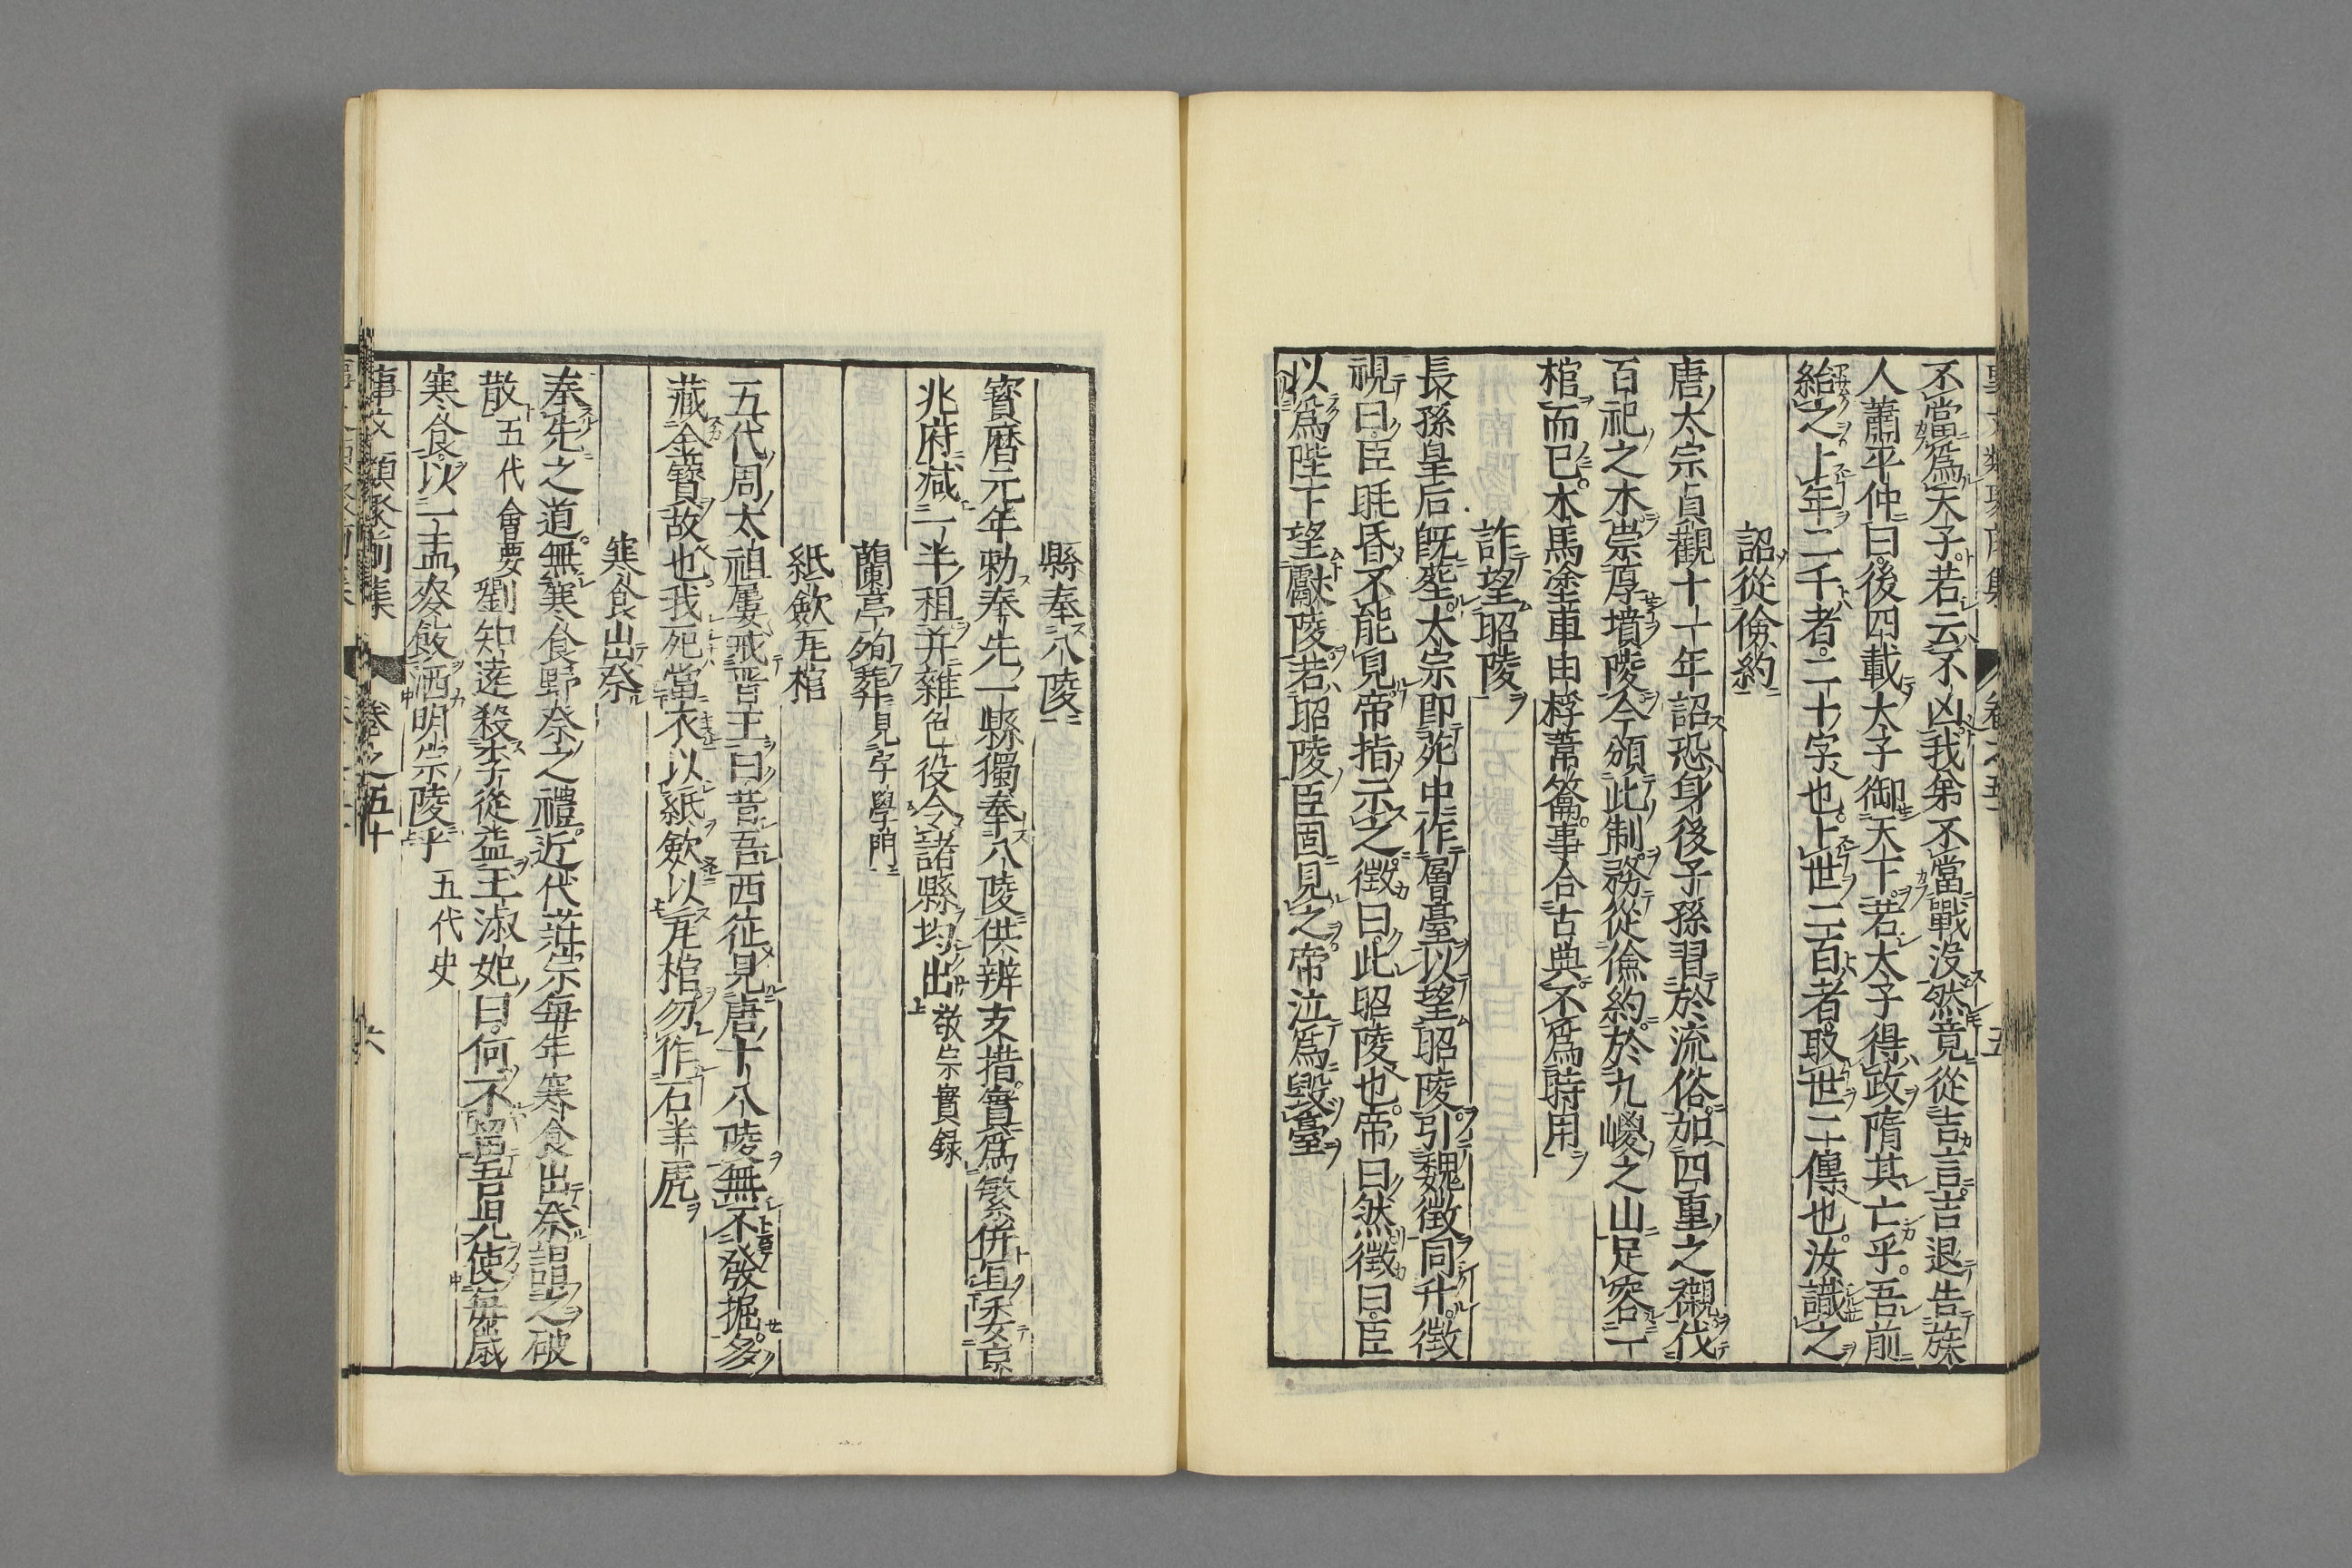 不當爲天子若云不凶我弟不當戰没然竟從吉言吉退告族
人蕭平仲曰後四載太子御天下若太子得政隋其亡乎吾前
紿之上年二千者二十字也上世二百者取世二傳也汝識之
詔從儉約
唐太宗貞觀十一年詔恐身後子孫習於流俗加四重之櫬伐
百祀之木崇厚墳陵今頒此制務從儉約於九嵕之山足容一
棺而已木馬塗車由桴葦籥事合古典不爲時用
詐望昭陵
長孫皇后既葬太宗即苑中作層臺以望昭陵引魏徵同升徵
視曰臣眊昏不能見帝指示之徵曰此昭陵也帝曰然徵曰臣
以爲陛下望獻陵若昭陵臣固見之帝泣爲毀臺
縣奉八陵
寳曆元年勅奉先一縣獨奉八陵供辨支措實爲繁併宜委京
兆府减一半租并雜色役令諸縣均出敬宗實録
蘭亭殉葬見字學門
紙歛瓦棺
五代周太祖屢戒晋王曰昔吾西征見唐十八陵無不發掘多
藏金寳故也我死當衣以紙歛以瓦棺勿作石羊虎
寒食出祭
奉先之道無寒食野祭之禮近代莊宗毎年寒食出祭謂之破
散五代會要劉知遠殺李從益王淑妃曰何不留吾兒使毎歳
寒食以一盂麥飯洒明宗陵乎五代史
事文類聚前集 卷之五十 六